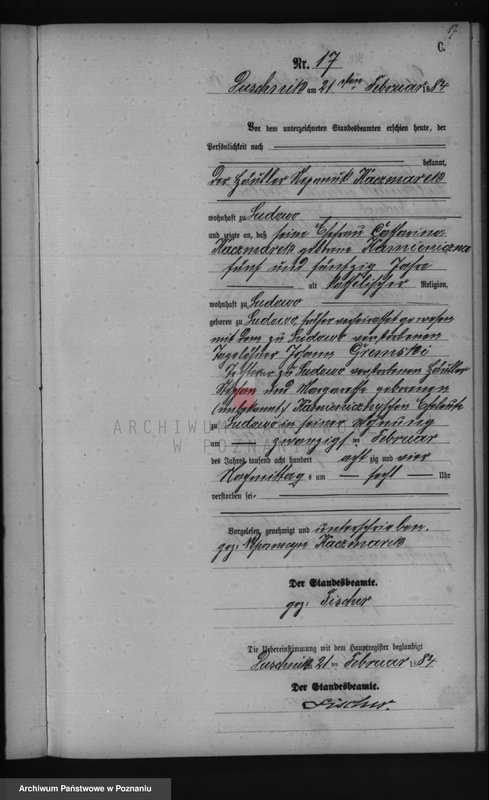 17
C.
Nr. 17
Duschnik am 21 ten Februar 1884
Vor dem unterzeichneten Standesbeamten erschien heute, der
Persönlichkeit nach
bekannt,
der Häusler Nepomuk Kaczmarek
wohnhaft zu Sudowo
und zeigte an, daß seine Ehefrau Catharina
Kaczmarek geborene
fünf und fünfzig Jahre
alt katholischer Religion,
wohnhaft zu Sudowo
geboren zu Sudowo, früher verheirathet gewesen
mit dem zu Sudowo verstorbenen
Tagelöhner Johann Gremski
Tochter zu Sudowo verstorbenen Häusler
und Margarethe geborenen
(unbekannt) Eheleute
zu Sudowo in seiner Wohnung
am zwanzigsten Februar
des Jahres tausend acht hundert achtzig und vier
Nachmittags um sechs Uhr
verstorben sei.
Vorgelesen, genehmigt und unterschrieben.
gez: Nepomucen Kaczmarek
Der Standesbeamte.
gez: Fischer
Die Uebereinstimmung mit dem Hauptregister beglaubigt
Duschnik 21 ten Februar 1884
Der Standesbeamte.
Fischer.
ARCHIWUM PAŃSTWOWE
W POZNANIU
Archiwum Państwowe w Poznaniu